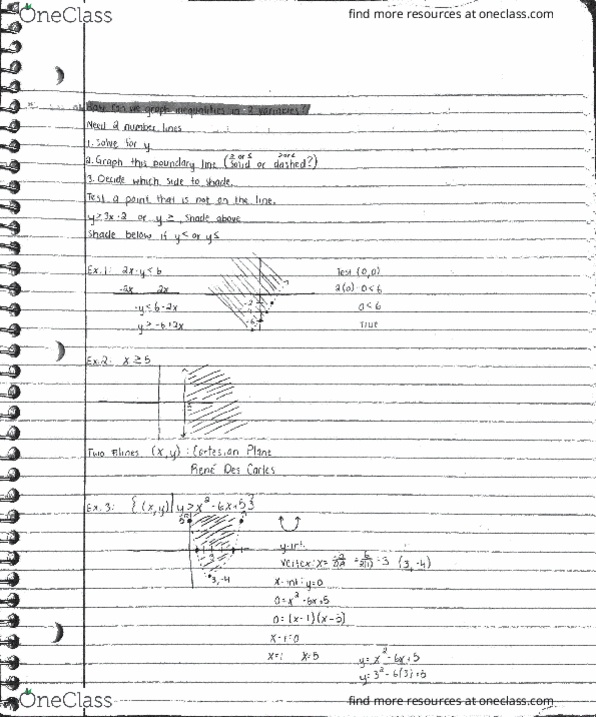 OneClass
find more resources at oneclass.com
How can we graph inequalities in 2 variables?
Need 2 number lines
1. Solve for y
2. Graph this boundary line (solid or dashed?)
3. Decide which side to shade.
Test a point that is not on the line.
y>3x-2 or y≥ shade above
shade below if y< or y≤
Ex. 1: 2x-y<6
-2x 2x
-y<6-2x
y>-6+2x
Test (0,0)
2(0)-0<6
0<6
True
Ex. 2: x≥5
Two lines (x,y): Cartesian Plane
René Des Cartes
Ex. 3: {(x,y)|y>x²-6x+5}
3,-4
y-int:
vertex: x= = 6/2(1) =3 (3,-4)
x-int: y=0
0=x²-6x+5
0=(x-1)(x-5)
x-1=0
x=1 x=5
y=x²-6x+5
y=3²-6(3)+5
OneClass
find more resources at oneclass.com